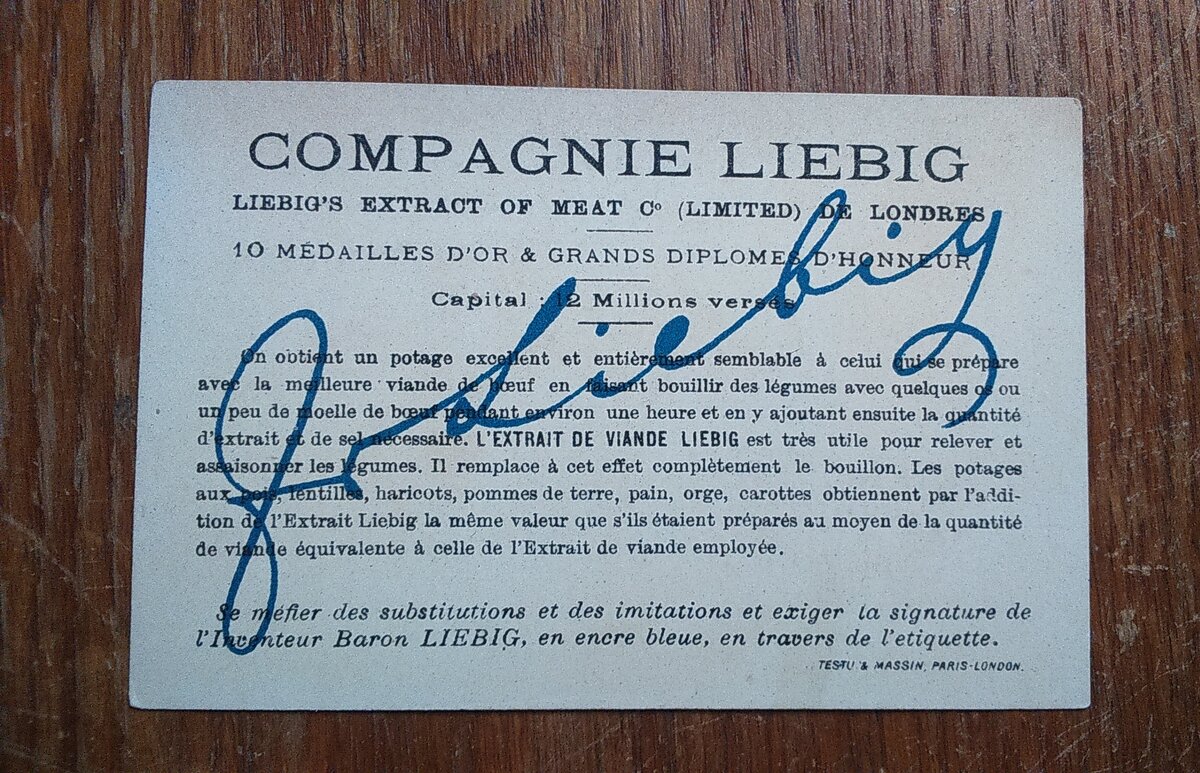 COMPAGNIE LIEBIG
LIEBIG'S EXTRACT OF MEAT Cº (LIMITED) DE LONDRES
10 MÉDAILLES D'OR & GRANDS DIPLOMES D'HONNEUR
Capital : 12 Millions versés
On obtient un potage excellent et entièrement semblable à celui qui se prépare
avec la meilleure viande de bœuf en faisant bouillir des légumes avec quelques os ou
un peu de moelle de bœuf pendant environ une heure et en y ajoutant ensuite la quantité
d'extrait et de sel nécessaire. L'EXTRAIT DE VIANDE LIEBIG est très utile pour relever et
assaisonner les légumes. Il remplace à cet effet complètement le bouillon. Les potages
aux pois, lentilles, haricots, pommes de terre, pain, orge, carottes obtiennent par l'addi-
tion de l'Extrait Liebig la même valeur que s'ils étaient préparés au moyen de la quantité
de viande équivalente à celle de l'Extrait de viande employée.
Se méfier des substitutions et des imitations et exiger la signature de
l'Inventeur Baron LIEBIG, en encre bleue, en travers de l'etiquette.
TESTU & MASSIN, PARIS-LONDON.
J v Liebig